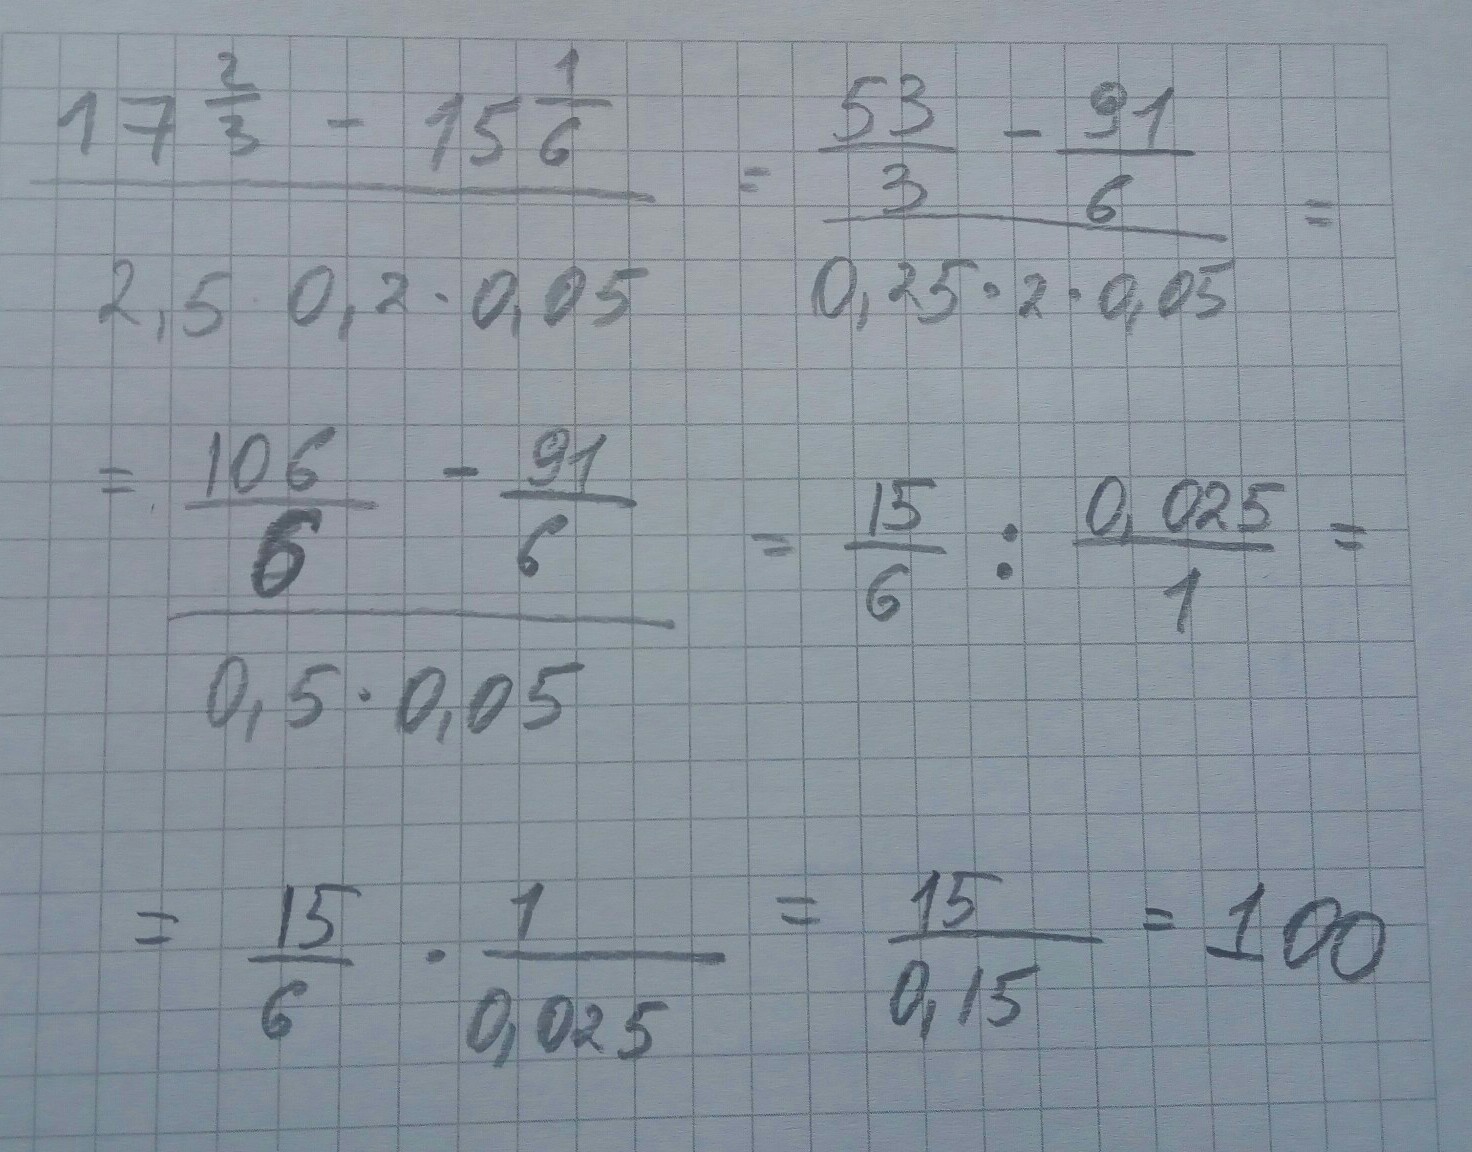 17 2/3 - 15 1/6 / 2,5 · 0,2 · 0,05 = 53/3 - 91/6 / 0,25 · 2 · 0,05 =
= 106/6 - 91/6 / 0,5 · 0,05 = 15/6 : 0,025/1 =
= 15/6 · 1/0,025 = 15/0,15 = 100